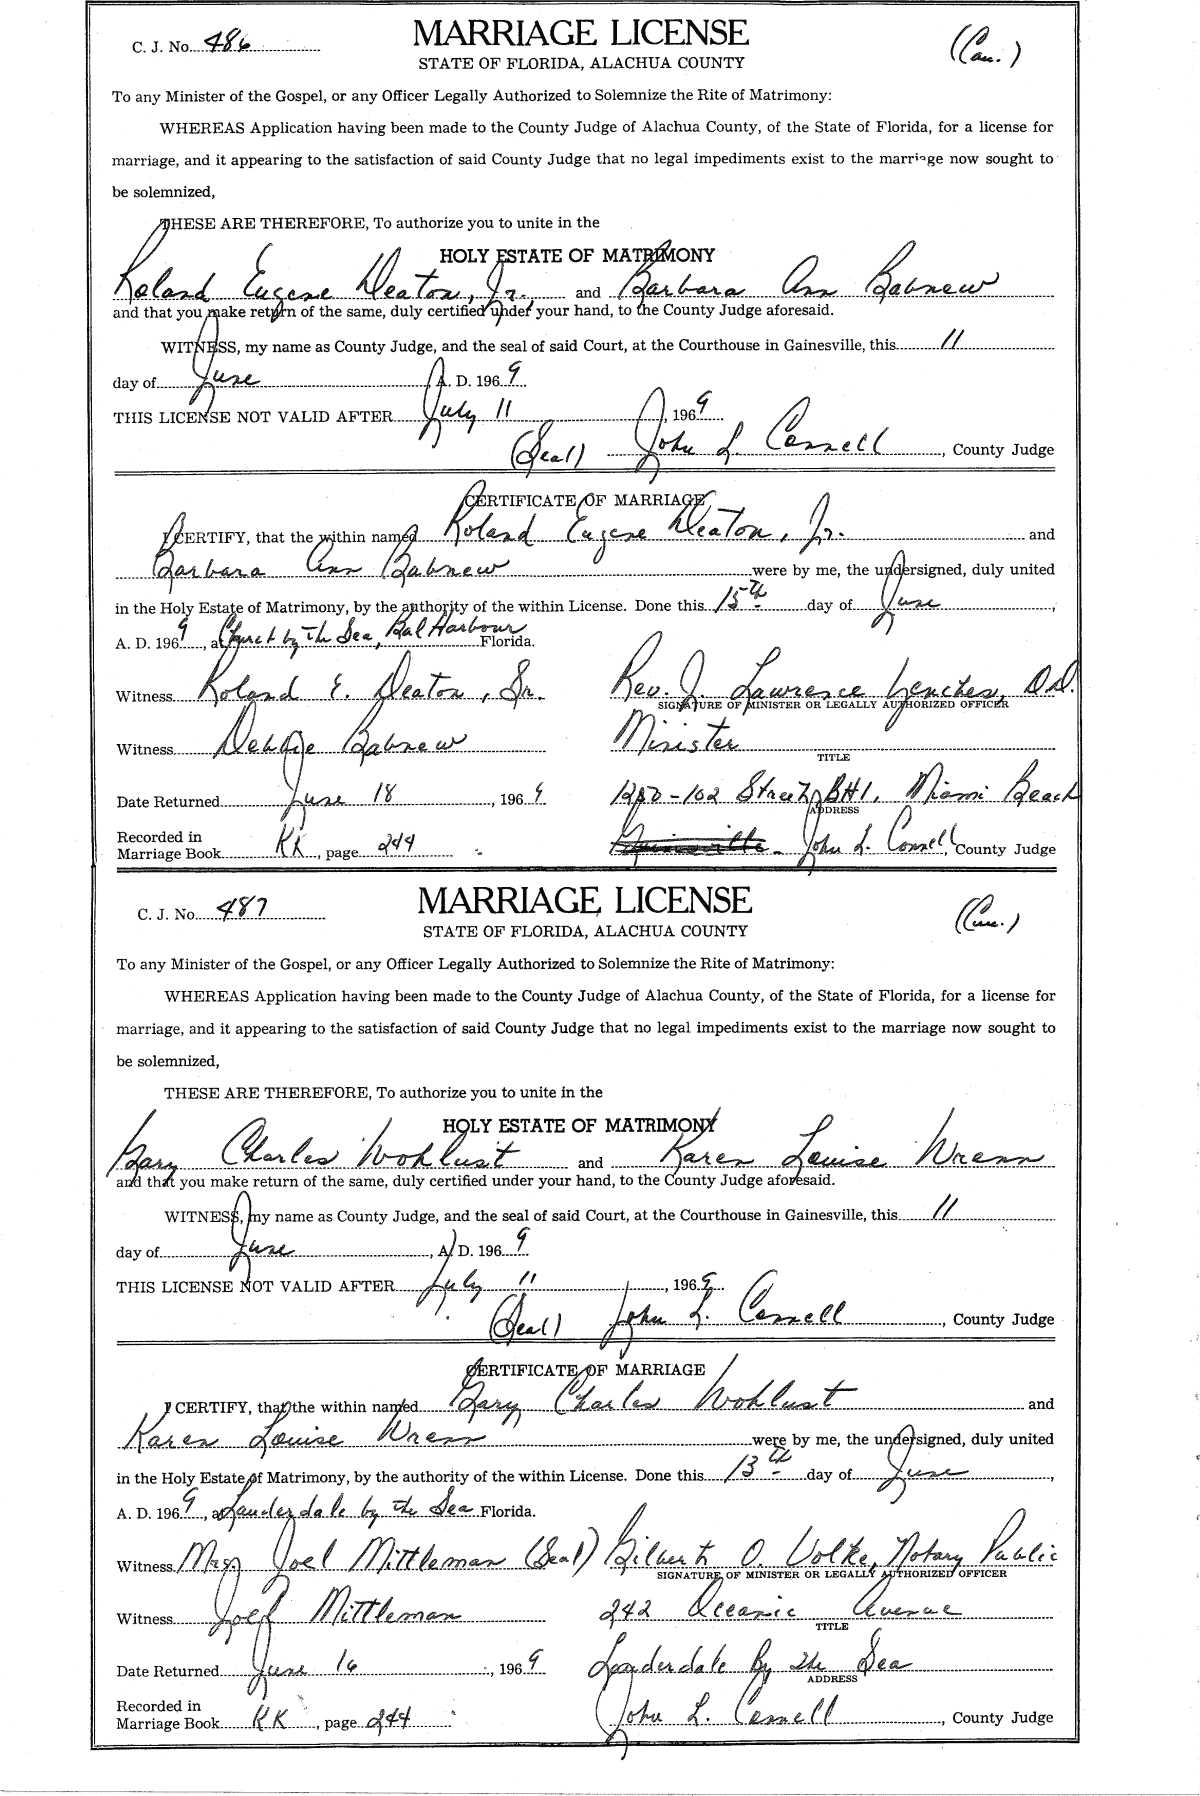 C. J. No. 486 MARRIAGE LICENSE (Cau.)
STATE OF FLORIDA, ALACHUA COUNTY
To any Minister of the Gospel, or any Officer Legally Authorized to Solemnize the Rite of Matrimony:
WHEREAS Application having been made to the County Judge of Alachua County, of the State of Florida, for a license for
marriage, and it appearing to the satisfaction of said County Judge that no legal impediments exist to the marriage now sought to
be solemnized,
THESE ARE THEREFORE, To authorize you to unite in the
HOLY ESTATE OF MATRIMONY
Roland Eugene Deaton, Jr. and Barbara Ann Babnew
and that you make return of the same, duly certified under your hand, to the County Judge aforesaid.
WITNESS, my name as County Judge, and the seal of said Court, at the Courthouse in Gainesville, this 11
day of June A. D. 196 9
THIS LICENSE NOT VALID AFTER July 11, 196 9
(Seal) John L. Connell, County Judge
CERTIFICATE OF MARRIAGE
I CERTIFY, that the within named Roland Eugene Deaton, Jr. and
Barbara Ann Babnew were by me, the undersigned, duly united
in the Holy Estate of Matrimony, by the authority of the within License. Done this 15th day of June,
A. D. 196 9, at Church by the Sea, Bal Harbour Florida.
Witness Roland E. Deaton, Sr. Rev. J. Lawrence D.D.
SIGNATURE OF MINISTER OR LEGALLY AUTHORIZED OFFICER
Witness Debbie Babnew Minister
TITLE
Date Returned June 18, 196 9 -102 Street, BHI, Miami Beach
ADDRESS
Recorded in
Marriage Book KK, page 244 John L. Connell, County Judge
C. J. No. 487 MARRIAGE LICENSE (Cau.)
STATE OF FLORIDA, ALACHUA COUNTY
To any Minister of the Gospel, or any Officer Legally Authorized to Solemnize the Rite of Matrimony:
WHEREAS Application having been made to the County Judge of Alachua County, of the State of Florida, for a license for
marriage, and it appearing to the satisfaction of said County Judge that no legal impediments exist to the marriage now sought to
be solemnized,
THESE ARE THEREFORE, To authorize you to unite in the
HOLY ESTATE OF MATRIMONY
Gary Charles Wohlust and Karen Louise Wrenn
and that you make return of the same, duly certified under your hand, to the County Judge aforesaid.
WITNESS, my name as County Judge, and the seal of said Court, at the Courthouse in Gainesville, this 11
day of June, A. D. 196 9
THIS LICENSE NOT VALID AFTER July 11, 196 9
(Seal) John L. Connell, County Judge
CERTIFICATE OF MARRIAGE
I CERTIFY, that the within named Gary Charles Wohlust and
Karen Louise Wrenn were by me, the undersigned, duly united
in the Holy Estate of Matrimony, by the authority of the within License. Done this 13th day of June,
A. D. 196 9, at Lauderdale by the Sea Florida.
Witness Mrs. Joel Mittleman (Seal) Gilbert O. Volke, Notary Public
SIGNATURE OF MINISTER OR LEGALLY AUTHORIZED OFFICER
Witness Joel Mittleman 242 Oceanic Avenue
TITLE
Date Returned June 16, 196 9 Lauderdale By the Sea
ADDRESS
Recorded in
Marriage Book KK, page 244 John L. Connell, County Judge